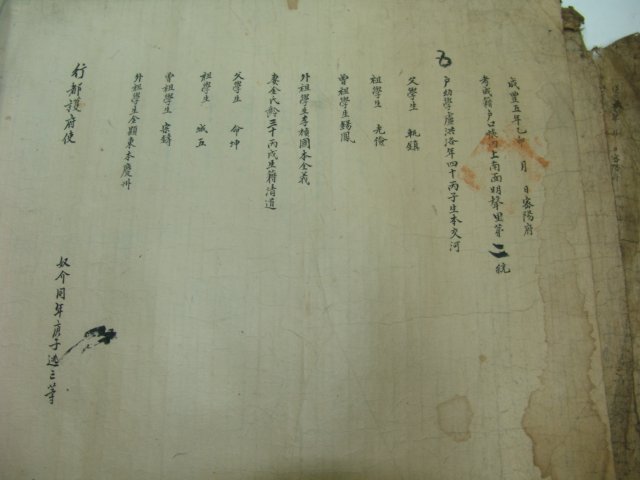 咸豊五年乙卯 月 日密陽府
考成籍戶口帳內上南面明聲里第二統
五戶幼學盧洪洛年四十丙子生本交河
父學生 執鎭
祖學生 光儉
曾祖學生錫鳳
外祖學生李楨國本全義
妻金氏齡三十丙戌生籍淸道
父學生 命坤
祖學生 城五
曾祖學生
外祖學生全顯東本慶州
行都護府使
奴介同年庚子逃亡等